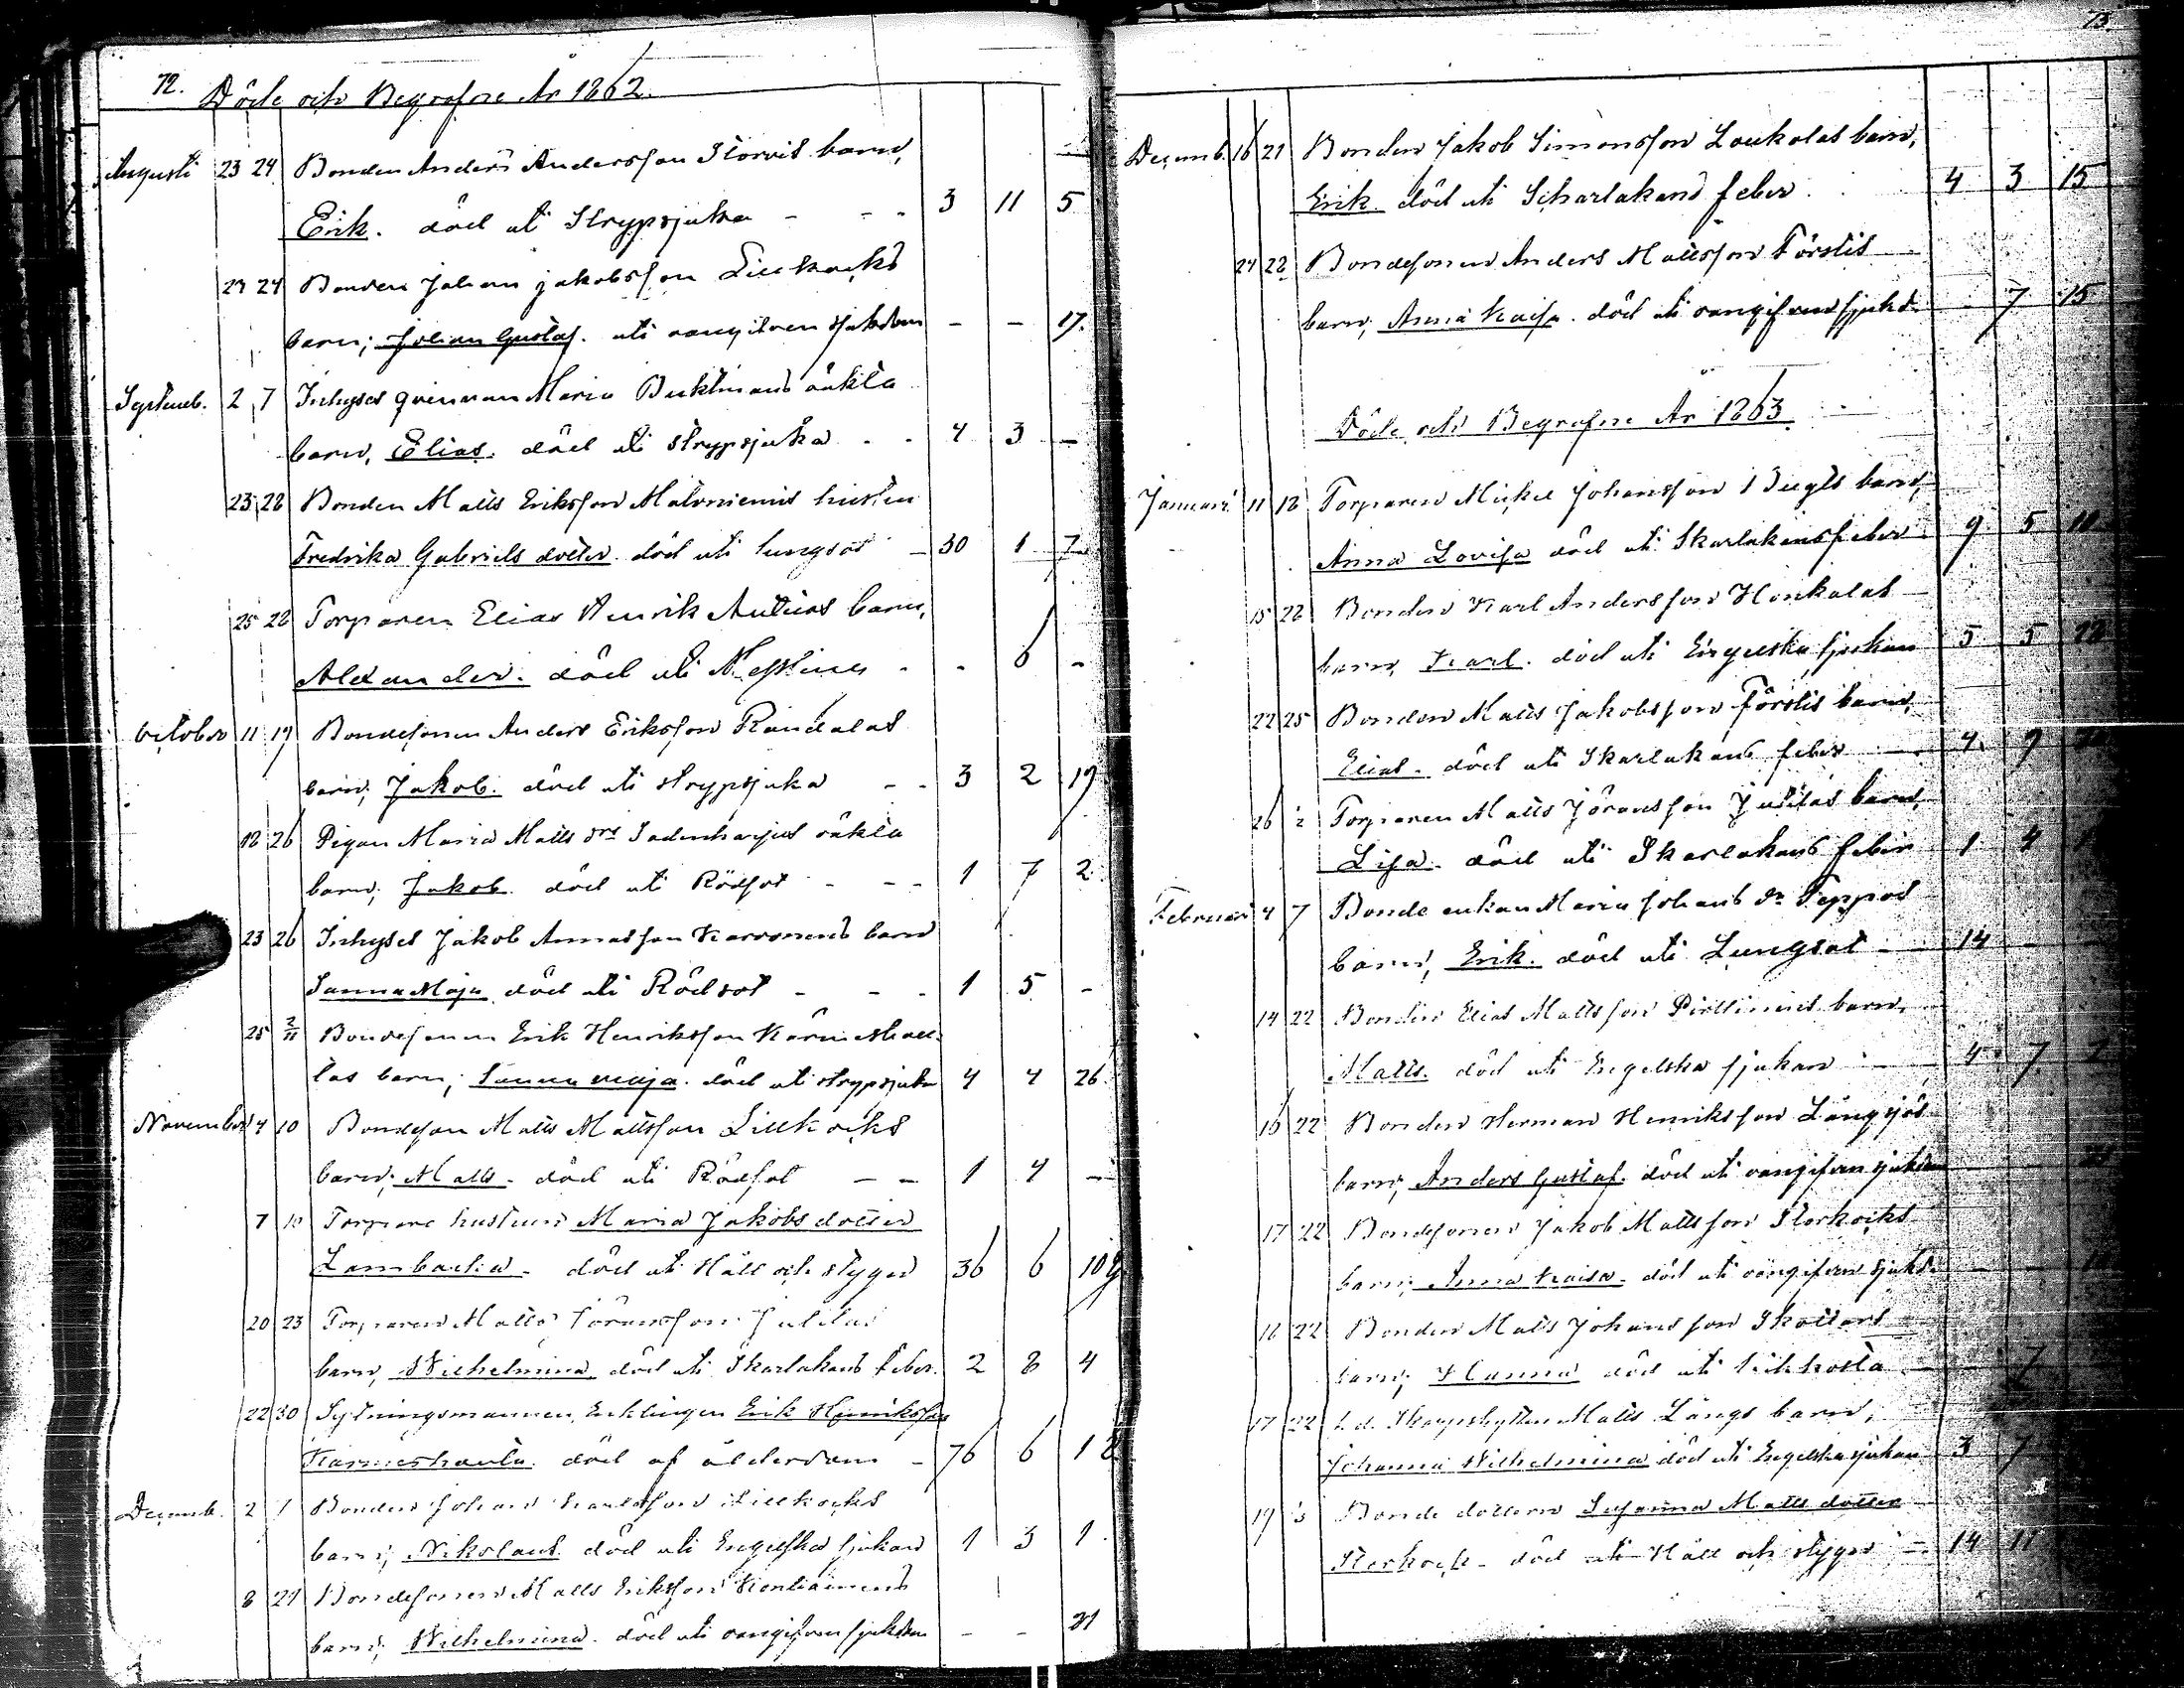 72. Döde och Begrafne År 1862.
Augusti 23 24 Bonden Anders Andersson Storvis barn,
Erik. död uti Strypsjuka - - - 3 11 5
24 Bonden Johan Jakobsson Lillkocks
barn; Johan Gustaf. uti oangifven sjukdom - - 17.
Septemb. 2 7 Inhyses qvinnan Maria Buktmans oäkta
barn, Elias. död uti strypsjuka - - 4 3 -
23 28 Bonden Matts Eriksson Matoniemis hustru
Fredrika Gabriels dotter död uti lungsot - 30 1 7
25 28 Torparen Elias Henrik barn,
Alexander. död uti Messling - - 6 -
October 11 19 Bondesonen Anders Eriksson Randalas
barn; Jakob. död uti strypsjuka - - 3 2 19
18 26 Pigan Maria Matts drs Sadenharjus oäkta
barn; Jakob. död uti Rödsot - - - 1 7 2
23 26 Inhyses Jakob Karvonens barn
Sanna Maja död uti Rödsot - - - 1 5 -
25 2/11 Bondesonen Erik Henriksson
las barn; Sanna maja. död uti strypsjuka 4 4 26.
November 4 10 Bondeson Matts Mattsson Lillkocks
barn; Matts. död uti Rödsot - - 1 4 -
7 10 Torpare hustrun Maria Jakobs dotter
död uti Håll och stygn 36 6 10
20 23 Torparen Matts Göransson Julitas
barn, Wilhelmina död uti Skarlakans feber. 2 8 4
22 30 Sytningsmannen, Enklingen Erik Henriksson
död af ålderdom - 76 6 1
Decemb. 2 7 Bonden Johan Karlsson Lillkocks
barn; Nikolaus. död uti Engelska sjukan 1 3 1.
8 21 Bondesonen Matts Eriksson Kontiainens
barn; Wilhelmina. död uti oangifven sjukdom - - 21
73.
Decemb. 16 21 Bonden Jakob Simonsson Loukolas barn,
Erik. död uti Scharlakans feber. 4 3 15
24 28 Bondesonen Anders Mattsson Förstis
barn; Anna Kaisa. död uti oangifven sjukd. 7 15
Döde och Begrafne År 1863.
Januari 11 18 Torparen Mickel Johansson barn,
Anna Lovisa död uti Skarlakansfeber. 9 5
15 22 Bonden Karl Andersson Honkalas
barn, Karl. död uti Engelska sjukan 5 5 22
22 25 Bonden Matts Jakobsson Förstis barn,
Elias. död uti Skarlakans feber 4. 9
26 Torparen Matts Göransson Julitas barn,
Lisa. död uti Skarlakans feber 1 4
Februari 4 7 Bonde enkan Maria Johans dr Teppos
barn, Erik. död uti Lungsot - 14
14 22 Bonden Elias Mattsson barn,
Matts. död uti Engelska sjukan - 4 7 2
16 22 Bonden Herman Henriksson Långsjös
barn; Anders Gustaf. död uti oangifven sjukdom
17 22 Bondesonen Jakob Mattsson Storkocks
barn; Anna Kaisa. död uti oangifven sjukd.
18 22 Bonden Matts Johansson Skottars
barn; Hanna död uti kikhosta 7
17 22 f. d. Skarpskytten Matts Långs barn,
Johanna Wilhelmina död uti Engelska sjukan 3 7
19 Bonde dottern Susanna Matts dotter
Storkock - död uti Håll och stygn - 14 11